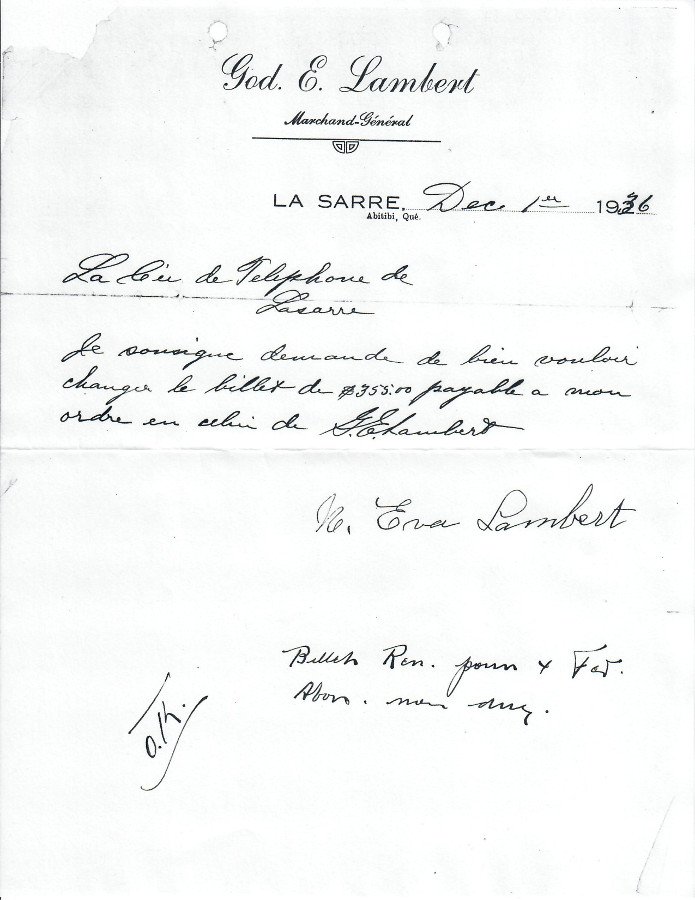 God. E. Lambert
Marchand-Général
LA SARRE, Dec 1er 1936
Abitibi, Qué.
La Cie de Telephone de
Lasarre
Je sousigne demande de bien vouloir
changer le billet de $355.00 payable a mon
ordre en celui de G.E. Lambert
Eva Lambert
Billet Ren. pour
Abon. non
O.K.